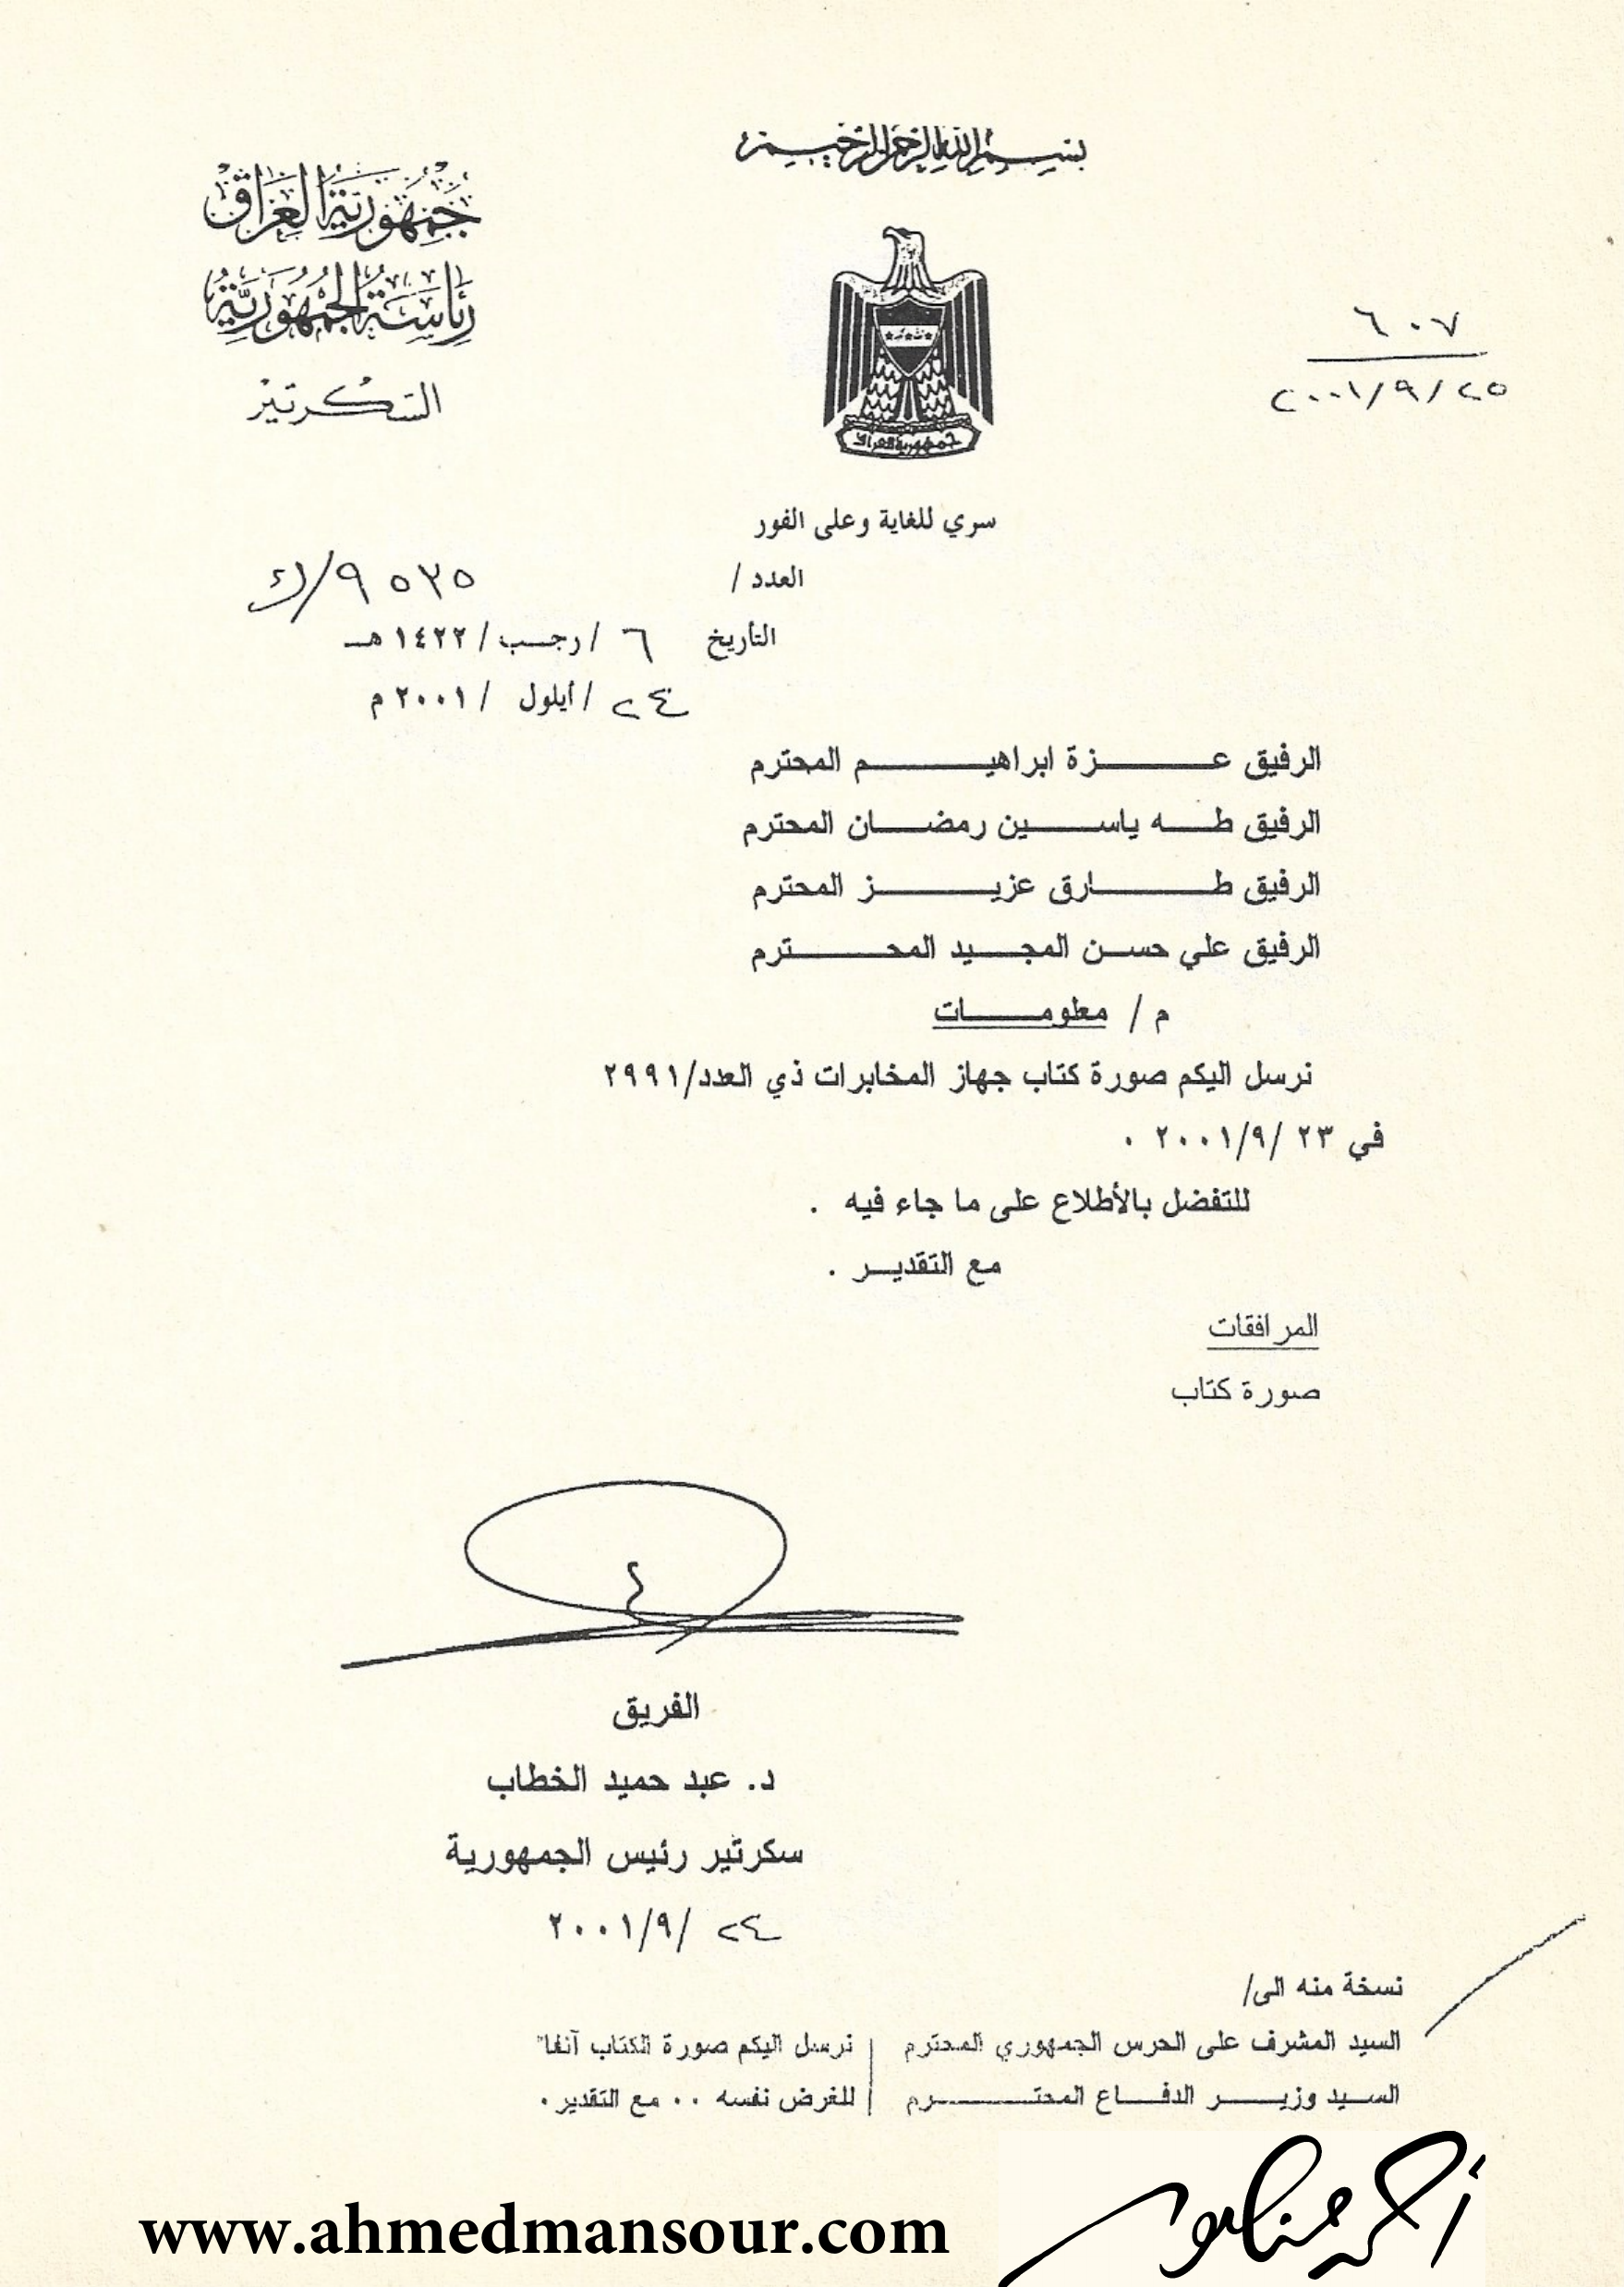 بسم الله الرحمن الرحيم
جمهورية العراق
رئاسة الجمهورية
السكرتير
٦٠٧
٢٠٠١/٩/٢٥
جمهورية العراق
سري للغاية وعلى الفور
العدد / ٩٥٣٥/ك
التأريخ ٦ /رجب/ ١٤٢٢هـ
٢٤ /أيلول / ٢٠٠١ م
الرفيق عزة ابراهيم المحترم
الرفيق طه ياسين رمضان المحترم
الرفيق طارق عزيز المحترم
الرفيق علي حسن المجيد المحترم
م / معلومات
نرسل اليكم صورة كتاب جهاز المخابرات ذي العدد/٢٩٩١
في ٢٣ /٢٠٠١/٩ .
للتفضل بالأطلاع على ما جاء فيه .
مع التقدير .
المرافقات
صورة كتاب
الفريق
د. عبد حميد الخطاب
سكرتير رئيس الجمهورية
٢٤ /٢٠٠١/٩
نسخة منه الى/
السيد المشرف على الحرس الجمهوري المحترم | نرسل اليكم صورة الكتاب آنفا"
السيد وزير الدفاع المحترم | للغرض نفسه .. مع التقدير .
أحمد منصور
www.ahmedmansour.com